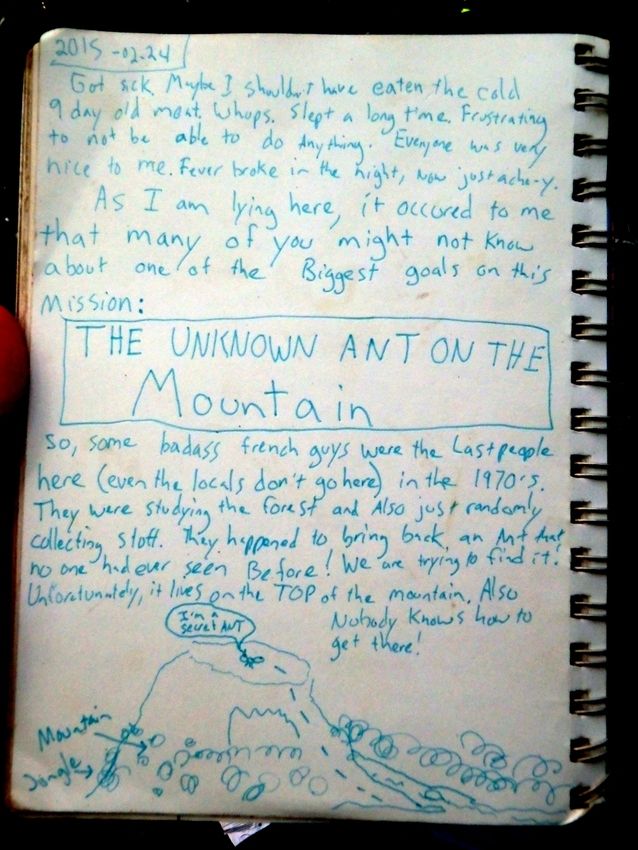 2015-02-24
Got sick. Maybe I shouldn't have eaten the cold
9 day old meat. Whups. Slept a long time. Frustrating
to not be able to do Anything. Everyone was very
nice to me. Fever broke in the night, now just ache-y.
As I am lying here, it occured to me
that many of you might not know
about one of the Biggest goals on this
Mission:
THE UNKNOWN ANT ON THE
Mountain
So, some badass french guys were the Last people
here (even the locals don't go here) in the 1970's.
They were studying the forest and Also just randomly
collecting stuff. They happened to bring back an Ant that
no one had ever seen Before! We are trying to find it!
Unfortunately, it lives on the TOP of the mountain. Also
Nobody Knows how to
get there!
I'm a
secret ANT
Mountain
Jungle